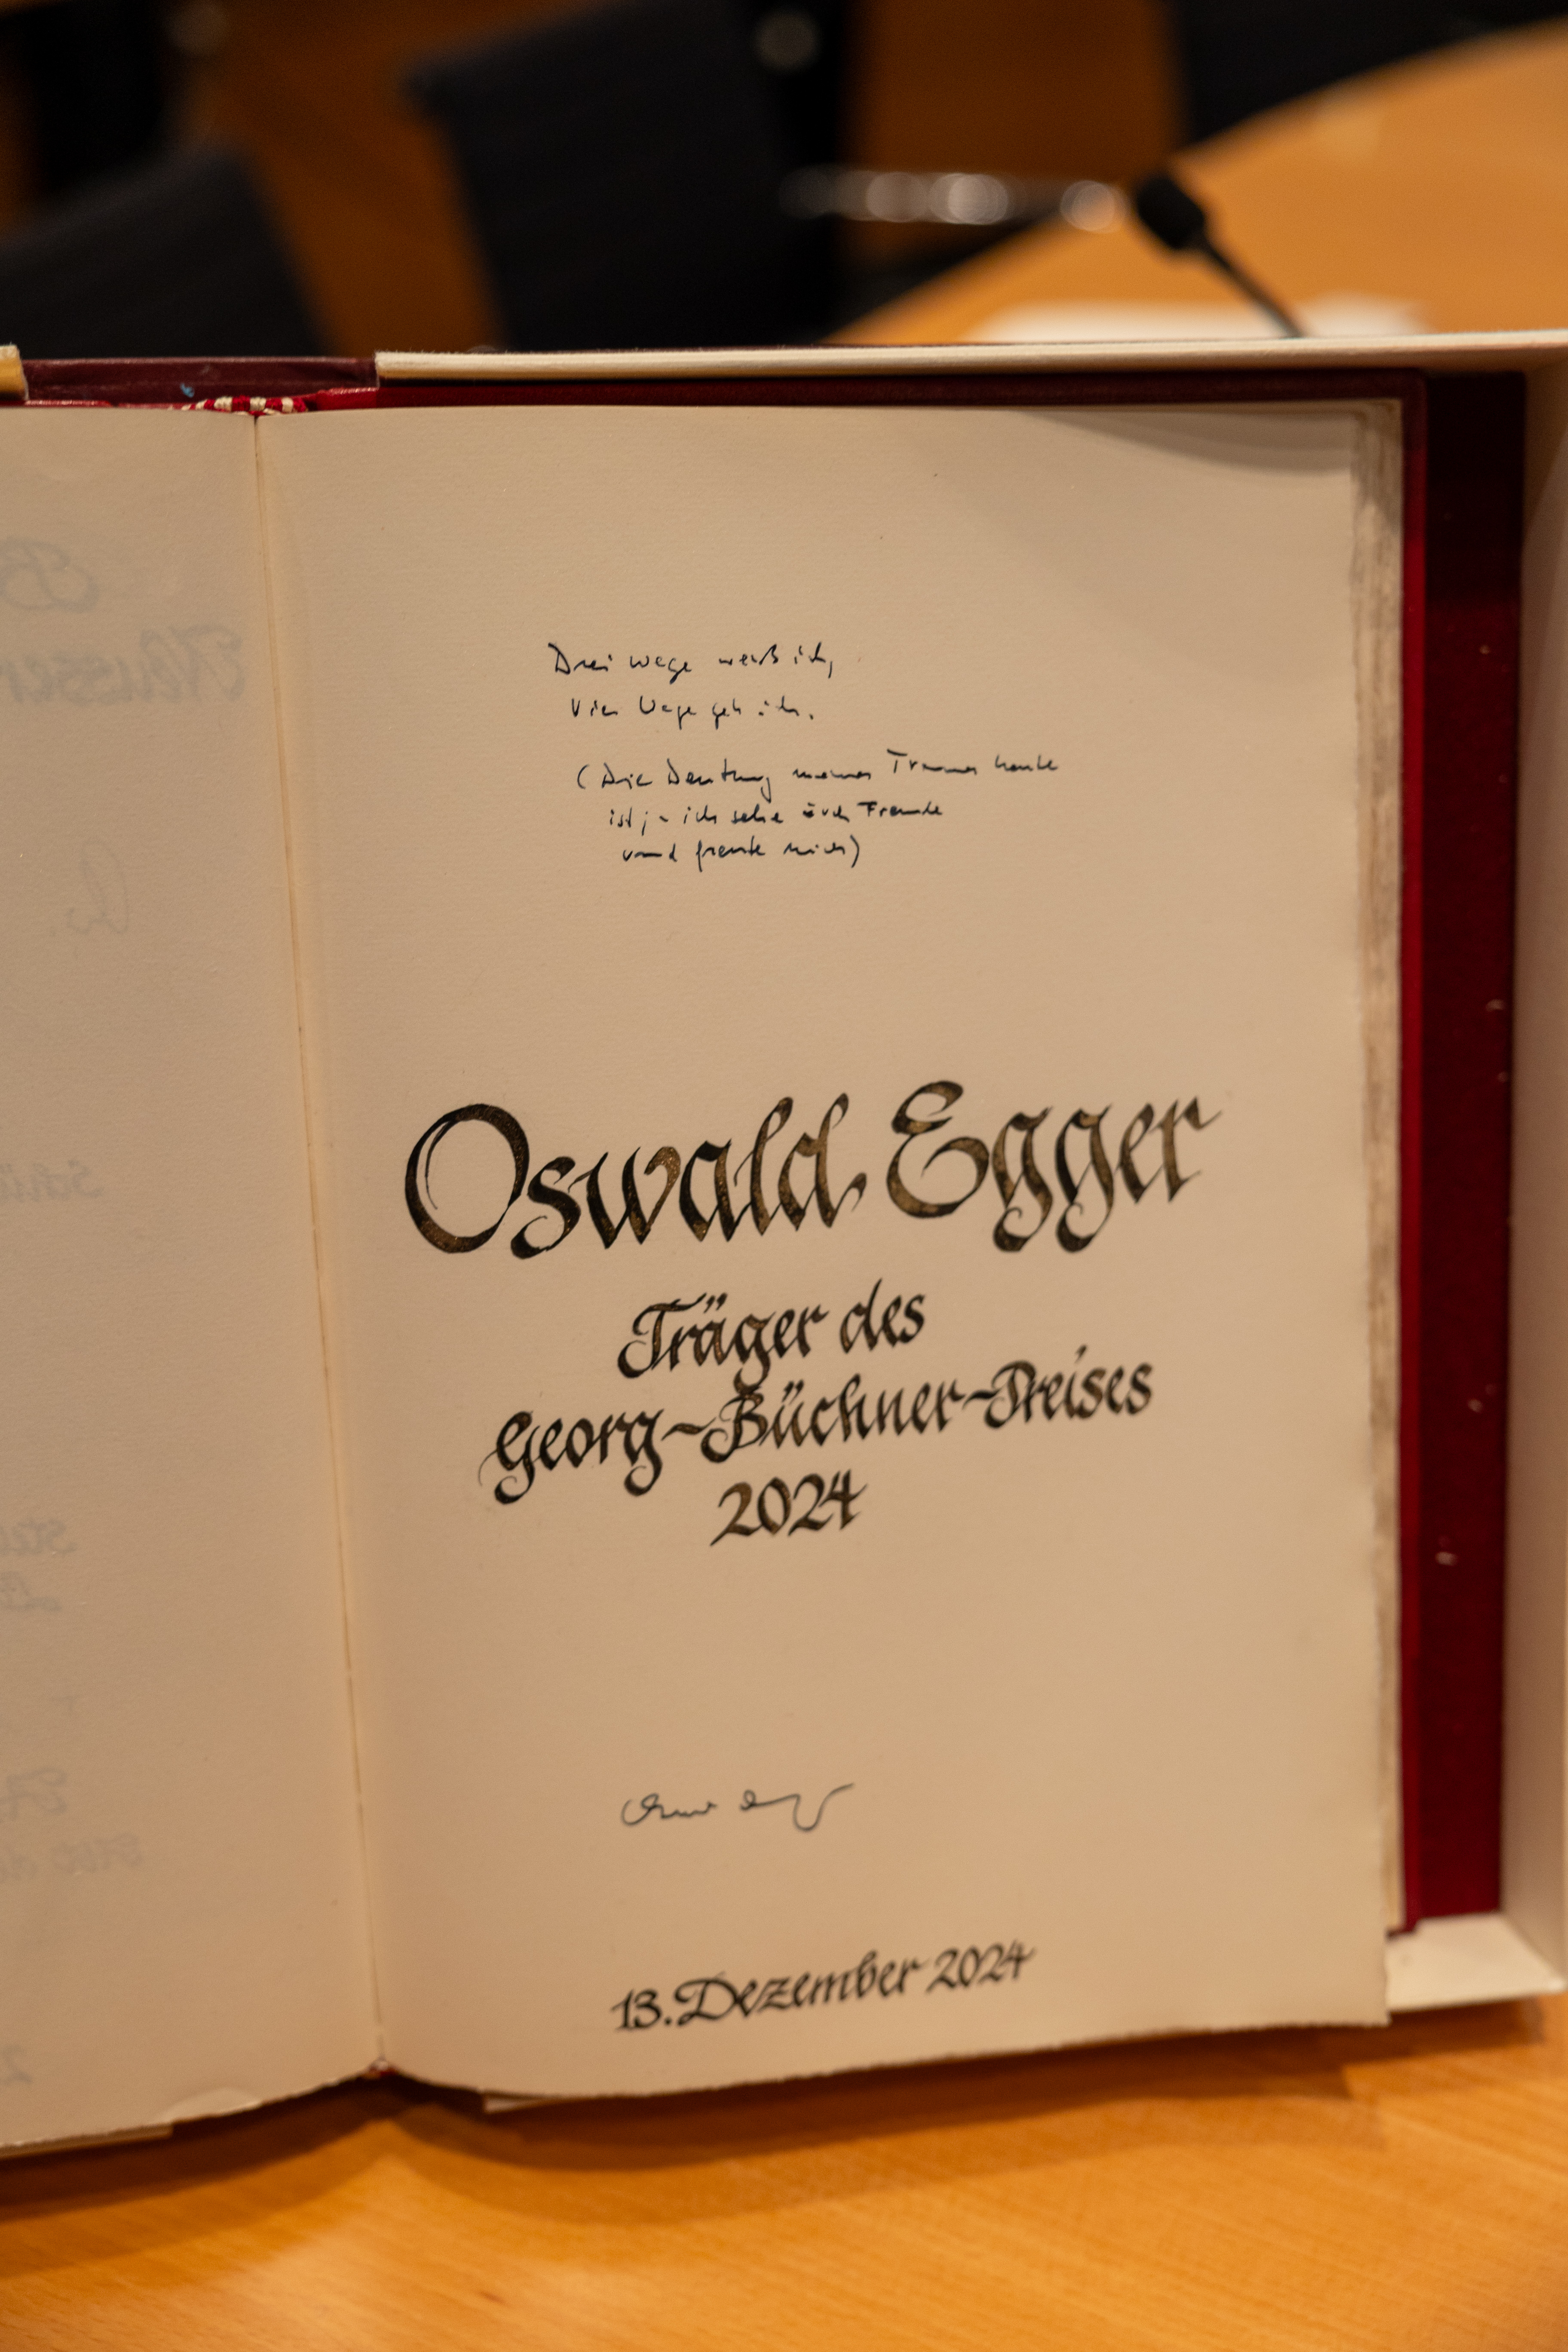 Drei Wege weiß ich,
vier Wege geh ich.
(Die Deutung meines Traumes heute
ist ja ich sehe euch Freunde
und freute mich)
Oswald Egger
Träger des
Georg-Büchner-Preises
2024
13. Dezember 2024